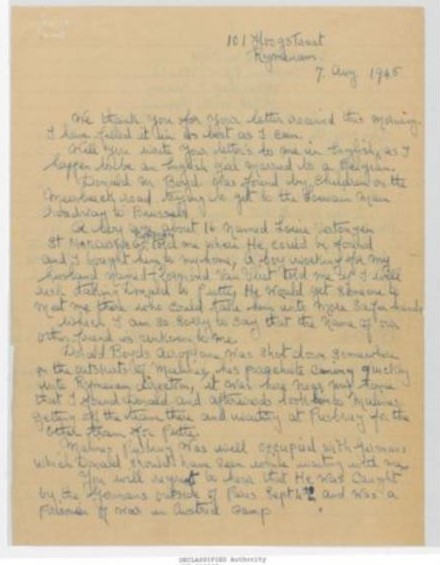 101 Hoogstraat
Rymenam
7 Aug 1945
We thank you for your letter received this morning.
I have filled it in as best as I can.
Will you write your letters to me in English, as I
happen to be an English girl married to a Belgian.
Donald M Boyd was found by children on the
road trying to get to the German Main
Roadway to Brussels
A boy about 16 named Louis
St told me where He could be found
and I bought him to my home, a boy working for my
husband named Van told me if I will
risk taking Donald to Putte, He would get someone to
meet me there who could take him into more safer hands
which I am so sorry to say that the name of our
other friend is unknown to me.
Donald Boyds aeroplane was shot down somewhere
on the outskirts of Malines, his parachute coming quickly
into Rymenam direction, it was here near my home
that I found Donald and afterwards took him to Malines
getting off the tram there and waiting at for the
other tram for Putte.
Malines was well occupied with Germans
which Donald should have seen while waiting with me.
You will regret to hear that He was caught
by the Germans outside of Paris Sept 4th and was a
prisoner of war in Austria Camp
DECLASSIFIED Authority